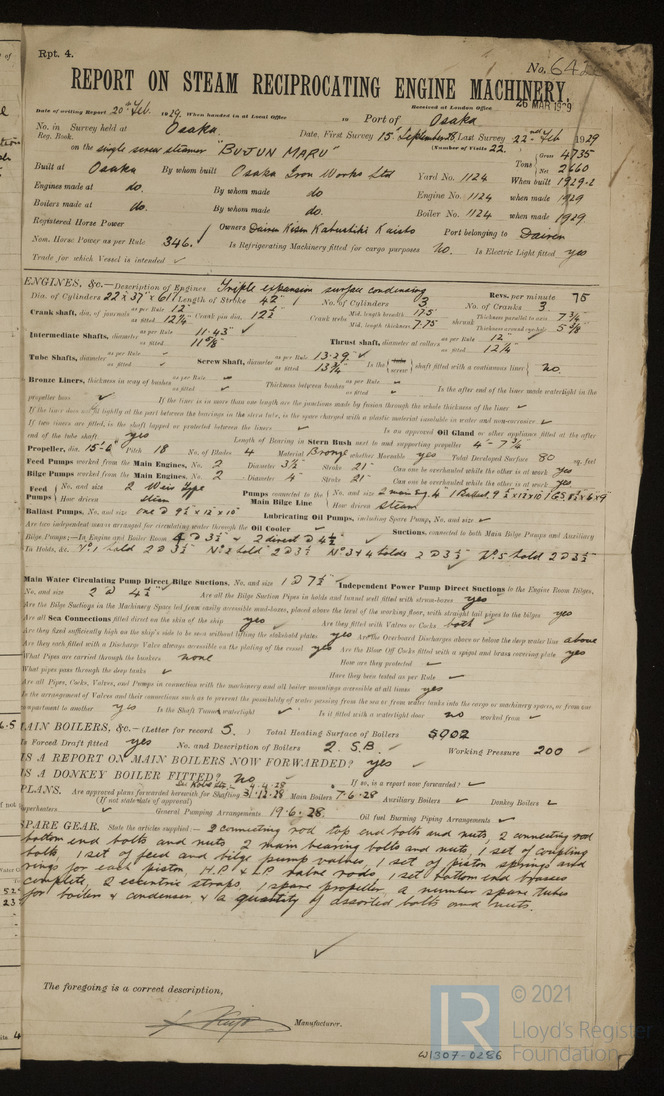 Rpt. 4.
No. 642
REPORT ON STEAM RECIPROCATING ENGINE MACHINERY.
Received at London Office 26 MAR 1929
Date of writing Report 20th Feb. 1929. When handed in at Local Office 10 Port of Osaka
No. in Survey held at Osaka Date, First Survey 15th September 28, Last Survey 22nd Feb 1929
Reg. Book. (Number of Visits 22.
on the single screw steamer "BUJUN MARU" Tons Gross 4735 Net 2660
Built at Osaka By whom built Osaka Iron Works Ltd Yard No. 1124 When built 1929-2
Engines made at do. By whom made do Engine No. 1124 when made 1929
Boilers made at do. By whom made do. Boiler No. 1124 when made 1929.
Registered Horse Power Owners Dairen Kisen Kabushiki Kaisha Port belonging to Dairen
Nom. Horse Power as per Rule 346. Is Refrigerating Machinery fitted for cargo purposes No. Is Electric Light fitted yes
Trade for which Vessel is intended ✓
ENGINES, &c.—Description of Engines Triple expansion surface condensing Revs. per minute 75
Dia. of Cylinders 22" x 37" x 61" Length of Stroke 42" No. of Cylinders 3 No. of Cranks 3.
Crank shaft, dia. of journals as per Rule 12" as fitted 12¼" Crank pin dia. 12½" Crank webs Mid. length breadth 17.5 Mid. length thickness 7.75 shrunk Thickness parallel to axis 7¾" Thickness around eye-hole 5⅝"
Intermediate Shafts, diameter as per Rule 11.43" ✓ as fitted 11⅝" Thrust shaft, diameter at collars as per Rule 12" as fitted 12¼"
Tube Shafts, diameter as per Rule ✓ as fitted ✓ Screw Shaft, diameter as per Rule 13.29" ✓ as fitted 13¾" Is the screw shaft fitted with a continuous liner no.
Bronze Liners, thickness in way of bushes as per Rule ✓ as fitted ✓ Thickness between bushes as per Rule ✓ as fitted ✓ Is the after end of the liner made watertight in the
propeller boss ✓ If the liner is in more than one length are the junctions made by fusion through the whole thickness of the liner ✓
If the liner does not fit tightly at the part between the bearings in the stern tube, is the space charged with a plastic material insoluble in water and non-corrosive ✓
If two liners are fitted, is the shaft lapped or protected between the liners ✓ Is an approved Oil Gland or other appliance fitted at the after
end of the tube shaft yes Length of Bearing in Stern Bush next to and supporting propeller 4'- 7¾"
Propeller, dia. 15'-6" Pitch 18 No. of Blades 4 Material Bronze whether Moveable yes Total Developed Surface 80 sq. feet
Feed Pumps worked from the Main Engines, No. 2 Diameter 3½" Stroke 21" Can one be overhauled while the other is at work yes
Bilge Pumps worked from the Main Engines, No. 2 Diameter 4" Stroke 21" Can one be overhauled while the other is at work yes
Feed Pumps No. and size 2 Weir Type How driven steam Pumps connected to the Main Bilge Line No. and size 2 main Eng. 4" 1 Ballast. 9½ x 12 x 10 1 G.S. 8½ x 6 x 9" How driven steam
Ballast Pumps, No. and size one D 9½ x 12 x 10" Lubricating Oil Pumps, including Spare Pump, No. and size ✓
Are two independent means arranged for circulating water through the Oil Cooler ✓ Suctions, connected to both Main Bilge Pumps and Auxiliary
Bilge Pumps;—In Engine and Boiler Room 4 D 3½" & 2 direct D 4½" ✓
In Holds, &c. No 1 hold 2 D 3½" No 2 hold 2 D 3½" No 3 & 4 holds 2 D 3½" No 5 hold 2 D 3½"
Main Water Circulating Pump Direct Bilge Suctions, No. and size 1 D 7½" ✓ Independent Power Pump Direct Suctions to the Engine Room Bilges,
No. and size 2 D 4½" ✓ Are all the Bilge Suction Pipes in holds and tunnel well fitted with strum-boxes yes
Are the Bilge Suctions in the Machinery Space led from easily accessible mud-boxes, placed above the level of the working floor, with straight tail pipes to the bilges yes
Are all Sea Connections fitted direct on the skin of the ship yes Are they fitted with Valves or Cocks both
Are they fixed sufficiently high on the ship's side to be seen without lifting the stokehold plates yes Are the Overboard Discharges above or below the deep water line above
Are they each fitted with a Discharge Valve always accessible on the plating of the vessel yes Are the Blow Off Cocks fitted with a spigot and brass covering plate yes
What Pipes are carried through the bunkers none How are they protected ✓
What pipes pass through the deep tanks ✓ Have they been tested as per Rule ✓
Are all Pipes, Cocks, Valves, and Pumps in connection with the machinery and all boiler mountings accessible at all times yes
Is the arrangement of Valves and their connections such as to prevent the possibility of water passing from the sea or from water tanks into the cargo or machinery spaces, or from one
compartment to another yes Is the Shaft Tunnel watertight ✓ Is it fitted with a watertight door no worked from ✓
MAIN BOILERS, &c.—(Letter for record S. Total Heating Surface of Boilers 5002
Is Forced Draft fitted yes No. and Description of Boilers 2. S.B. ✓ Working Pressure 200 ✓
IS A REPORT ON MAIN BOILERS NOW FORWARDED? yes ✓
IS A DONKEY BOILER FITTED? no ✓ If so, is a report now forwarded? ✓
PLANS. Are approved plans forwarded herewith for Shafting 31.12.28 Main Boilers 7.6.28 Auxiliary Boilers ✓ Donkey Boilers ✓
(If not state date of approval)
Superheaters ✓ General Pumping Arrangements 19.6.28. Oil fuel Burning Piping Arrangements ✓
SPARE GEAR. State the articles supplied:— 2 connecting rod top end bolts and nuts, 2 connecting rod
bottom end bolts and nuts, 2 main bearing bolts and nuts, 1 set of coupling
bolts, 1 set of feed and bilge pump valves, 1 set of piston springs and
rings for each piston, H.P. & L.P. valve rods, 1 set bottom end brasses
complete, 2 eccentric straps, 1 spare propeller, a number spare tubes
for boilers & condenser & a quantity of assorted bolts and nuts.
✓
The foregoing is a correct description,
Manufacturer.
LR © 2021
Lloyd's Register
Foundation
W1307-0286